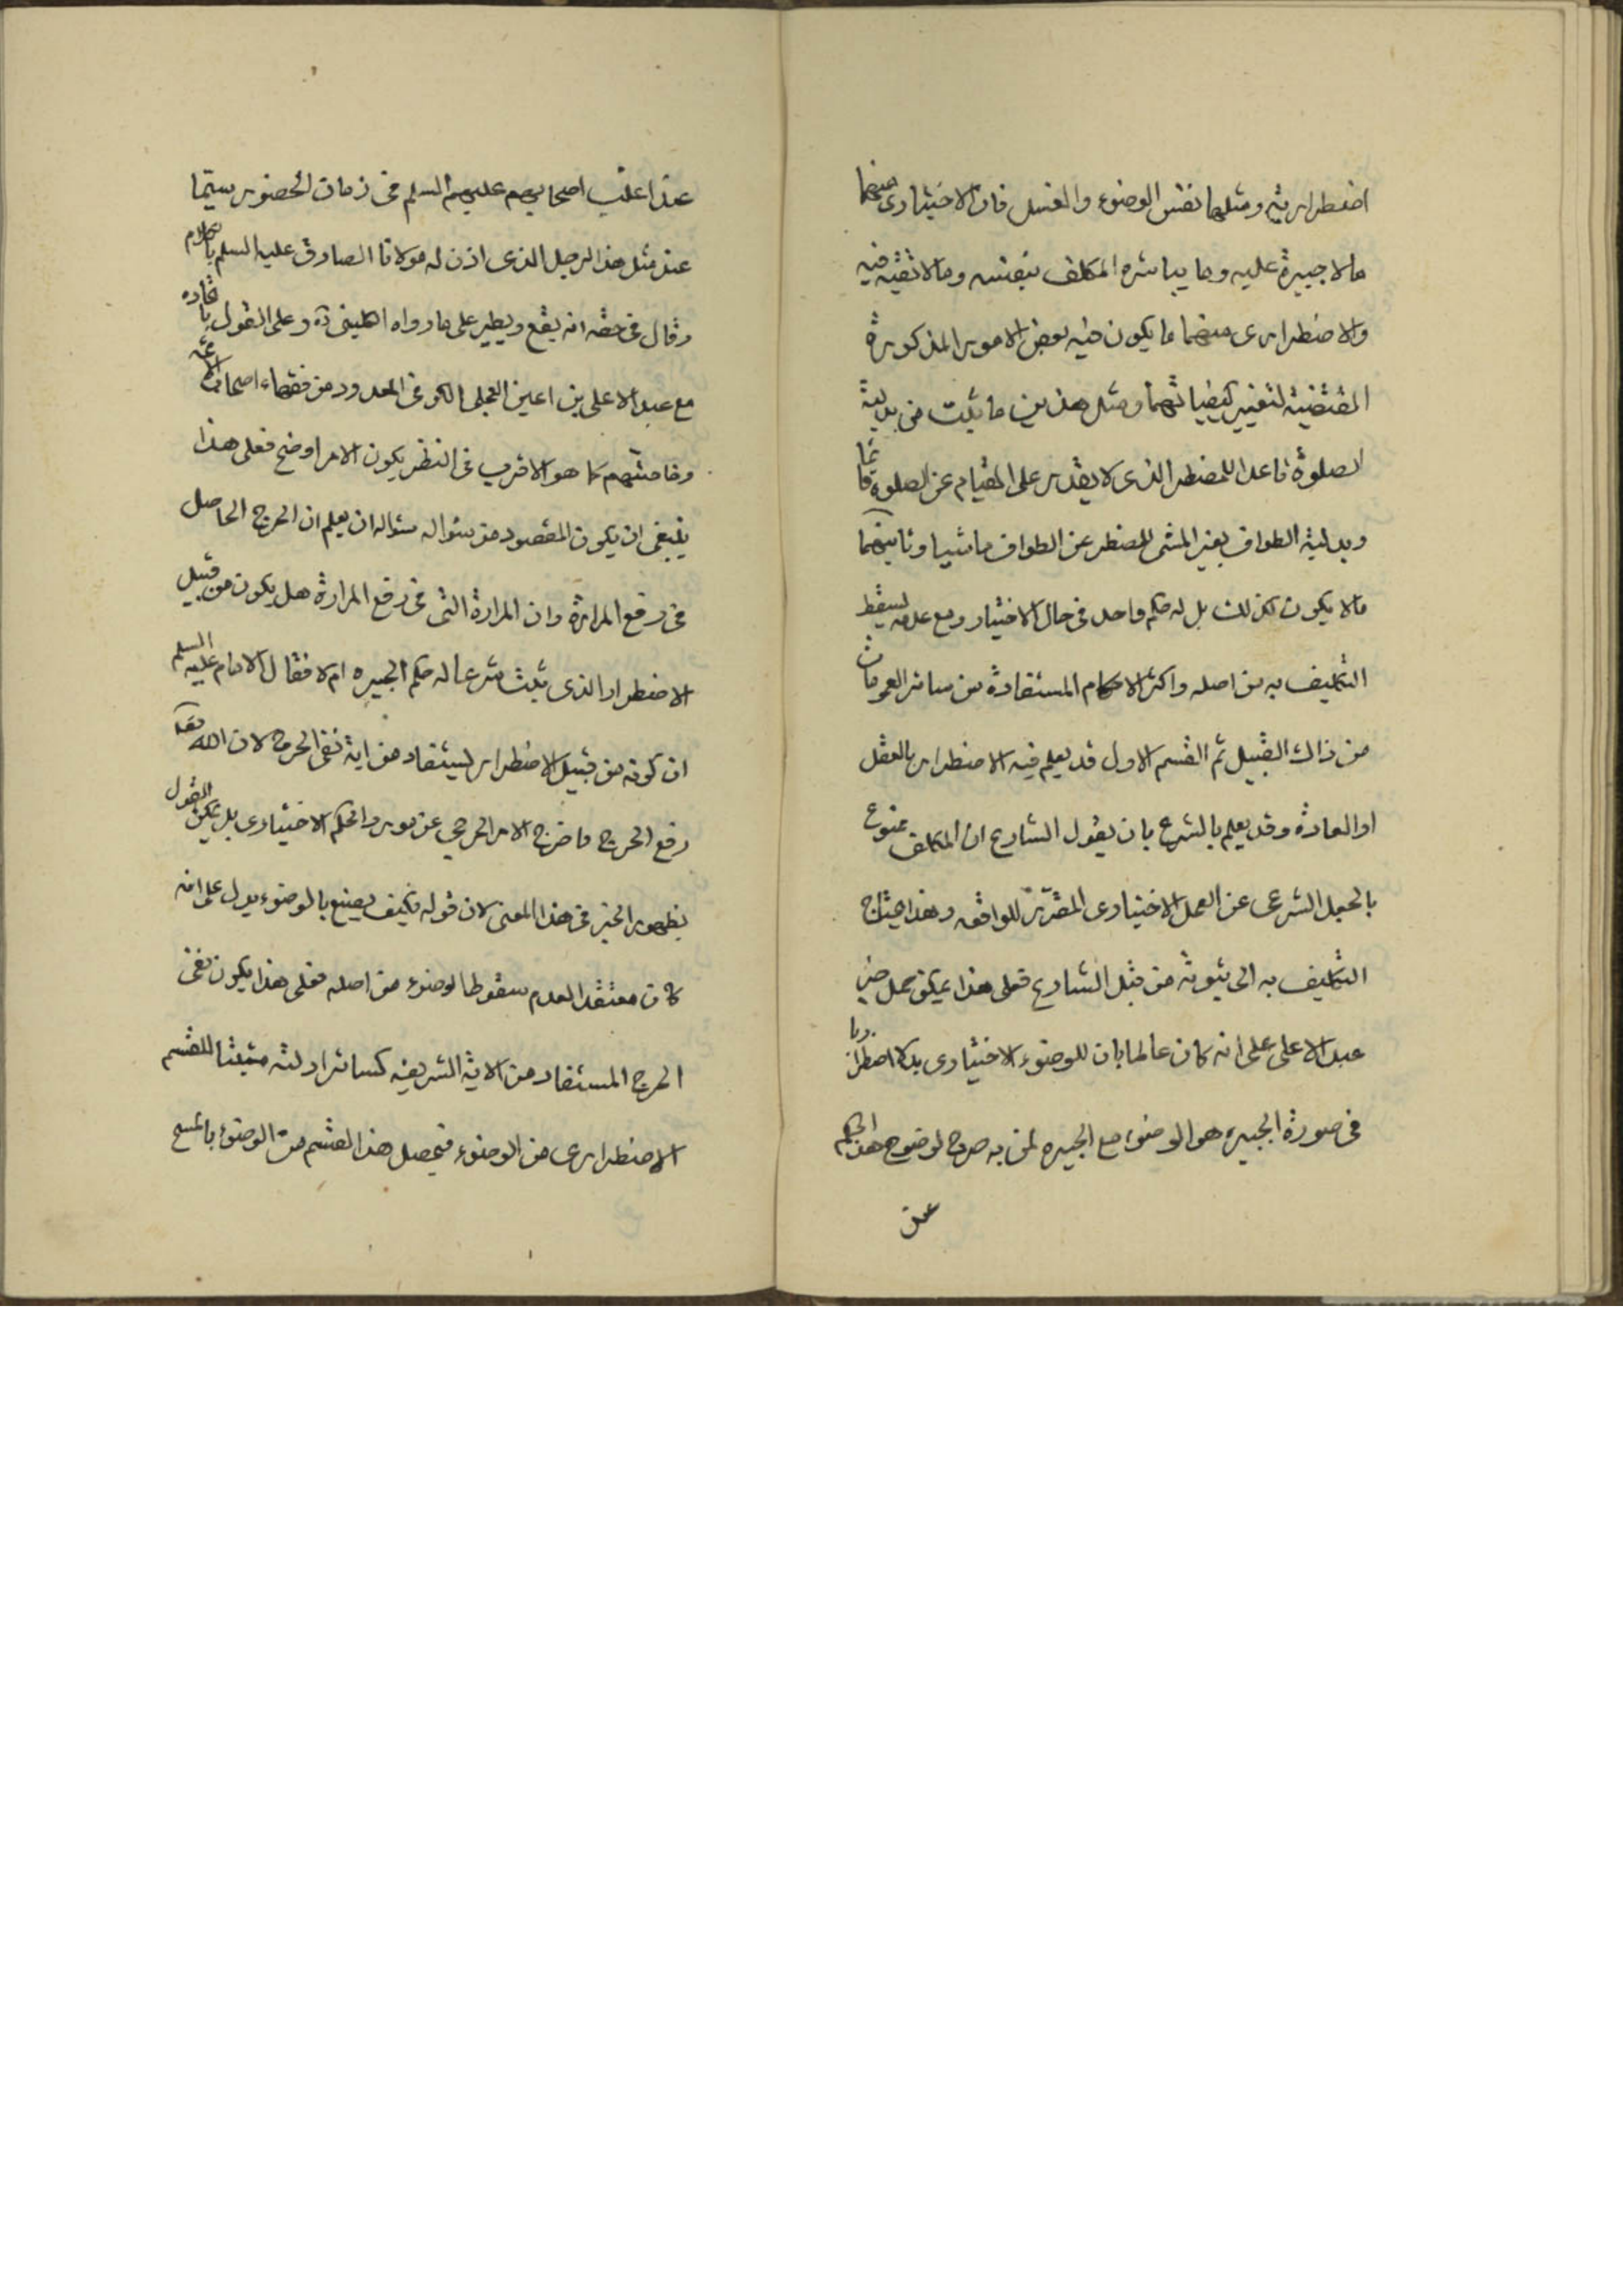 اضطرارية ومثلهما نفس الوضوء والغسل فان الاختيارى منهما
ما لا جبيرة عليه وما يباشره المكلف بنفسه وما لا تقية فيه
والاضطرارى منهما ما يكون فيه بعض الامور المذكورة
المقتضية لتغيير كيفياتهما ومثل هذين ما ثبت من بدلية
الصلوة قاعدا للمضطر الذى لا يقدر على القيام عن الصلوة قائما
وبدلية الطواف بغير المشى للمضطر عن الطواف ماشيا وثانيهما
ما لا يكون كذلك بل له حكم واحد فى حال الاختيار ومع عدمه يسقط
التكليف به من اصله واكثر الاحكام المستفادة من سائر العمومات
من ذلك القبيل ثم القسم الاول قد يعلم فيه الاضطرار بالعقل
او العادة وقد يعلم بالشرع بان يقول الشارع ان المكلف ممنوع
بالجعل الشرعى عن العمل الاختيارى المقرر للواقعه وهذا يحتاج
التكليف به الى ثبوته من قبل الشارع فعلى هذا يمكن حمل خبر
عبد الاعلى على انه كان عالما بان للوضوء الاختيارى بدلا اضطراريا
فى صورة الجبيره هو الوضوء مع الجبيره لمن به جروح لوضوح هذا الحكم
عند
عند اغلب اصحابهم عليهم السلم فى زمان الحضور سيما
عند مثل هذا الرجل الذى اذن له مولانا الصادق عليه السلم بالكلام
وقال فى حقه انه يقع ويطير على ما رواه الكلينى ره وعلى القول باتحاده
مع عبد الاعلى بن اعين العجلى الكوفى المعدود من فقهاء اصحاب الائمه
وخاصتهم كما هو الاقرب فى النظر يكون الامر اوضح فعلى هذا
ينبغى ان يكون المقصود من سئواله سئواله ان يعلم ان الحرج الحاصل
فى رفع المرارة وان المرارة التى فى رفع المرارة هل يكون من قبيل
الاضطرار الذى يثبت شرعا له حكم الجبيره ام لا فقال الامام عليه السلم
ان كونه من قبيل الاضطرار يستفاد من اية نفى الحرج لان الله تعه
رفع الحرج واخرج الامر الحرجى عن مورد الحكم الاختيارى بل يمكن القول
بظهور الخبر فى هذا المعنى لان قوله فكيف يصنع بالوضوء يدل على انه
كان معتقدا لعدم سقوط الوضوء من اصله فعلى هذا يكون نفى
الحرج المستفاد من الاية الشريفه كسائر ادلته مثبتا للقسم
الاضطرارى من الوضوء فيحصل هذا القسم من الوضوء بالمسح